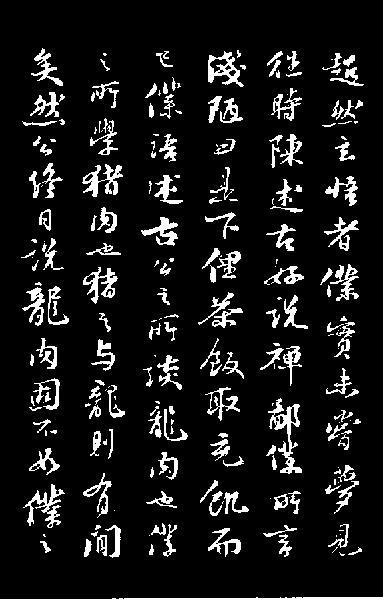 超然玄悟者僕實未嘗夢見
往時陳述古好說禪鄙僕所言
淺陋曰是下俚茶飯取充飢而
已僕語述古公之所談龍肉也僕
之所學猪肉也猪之与龍則有間
矣然公終日說龍肉固不如僕之